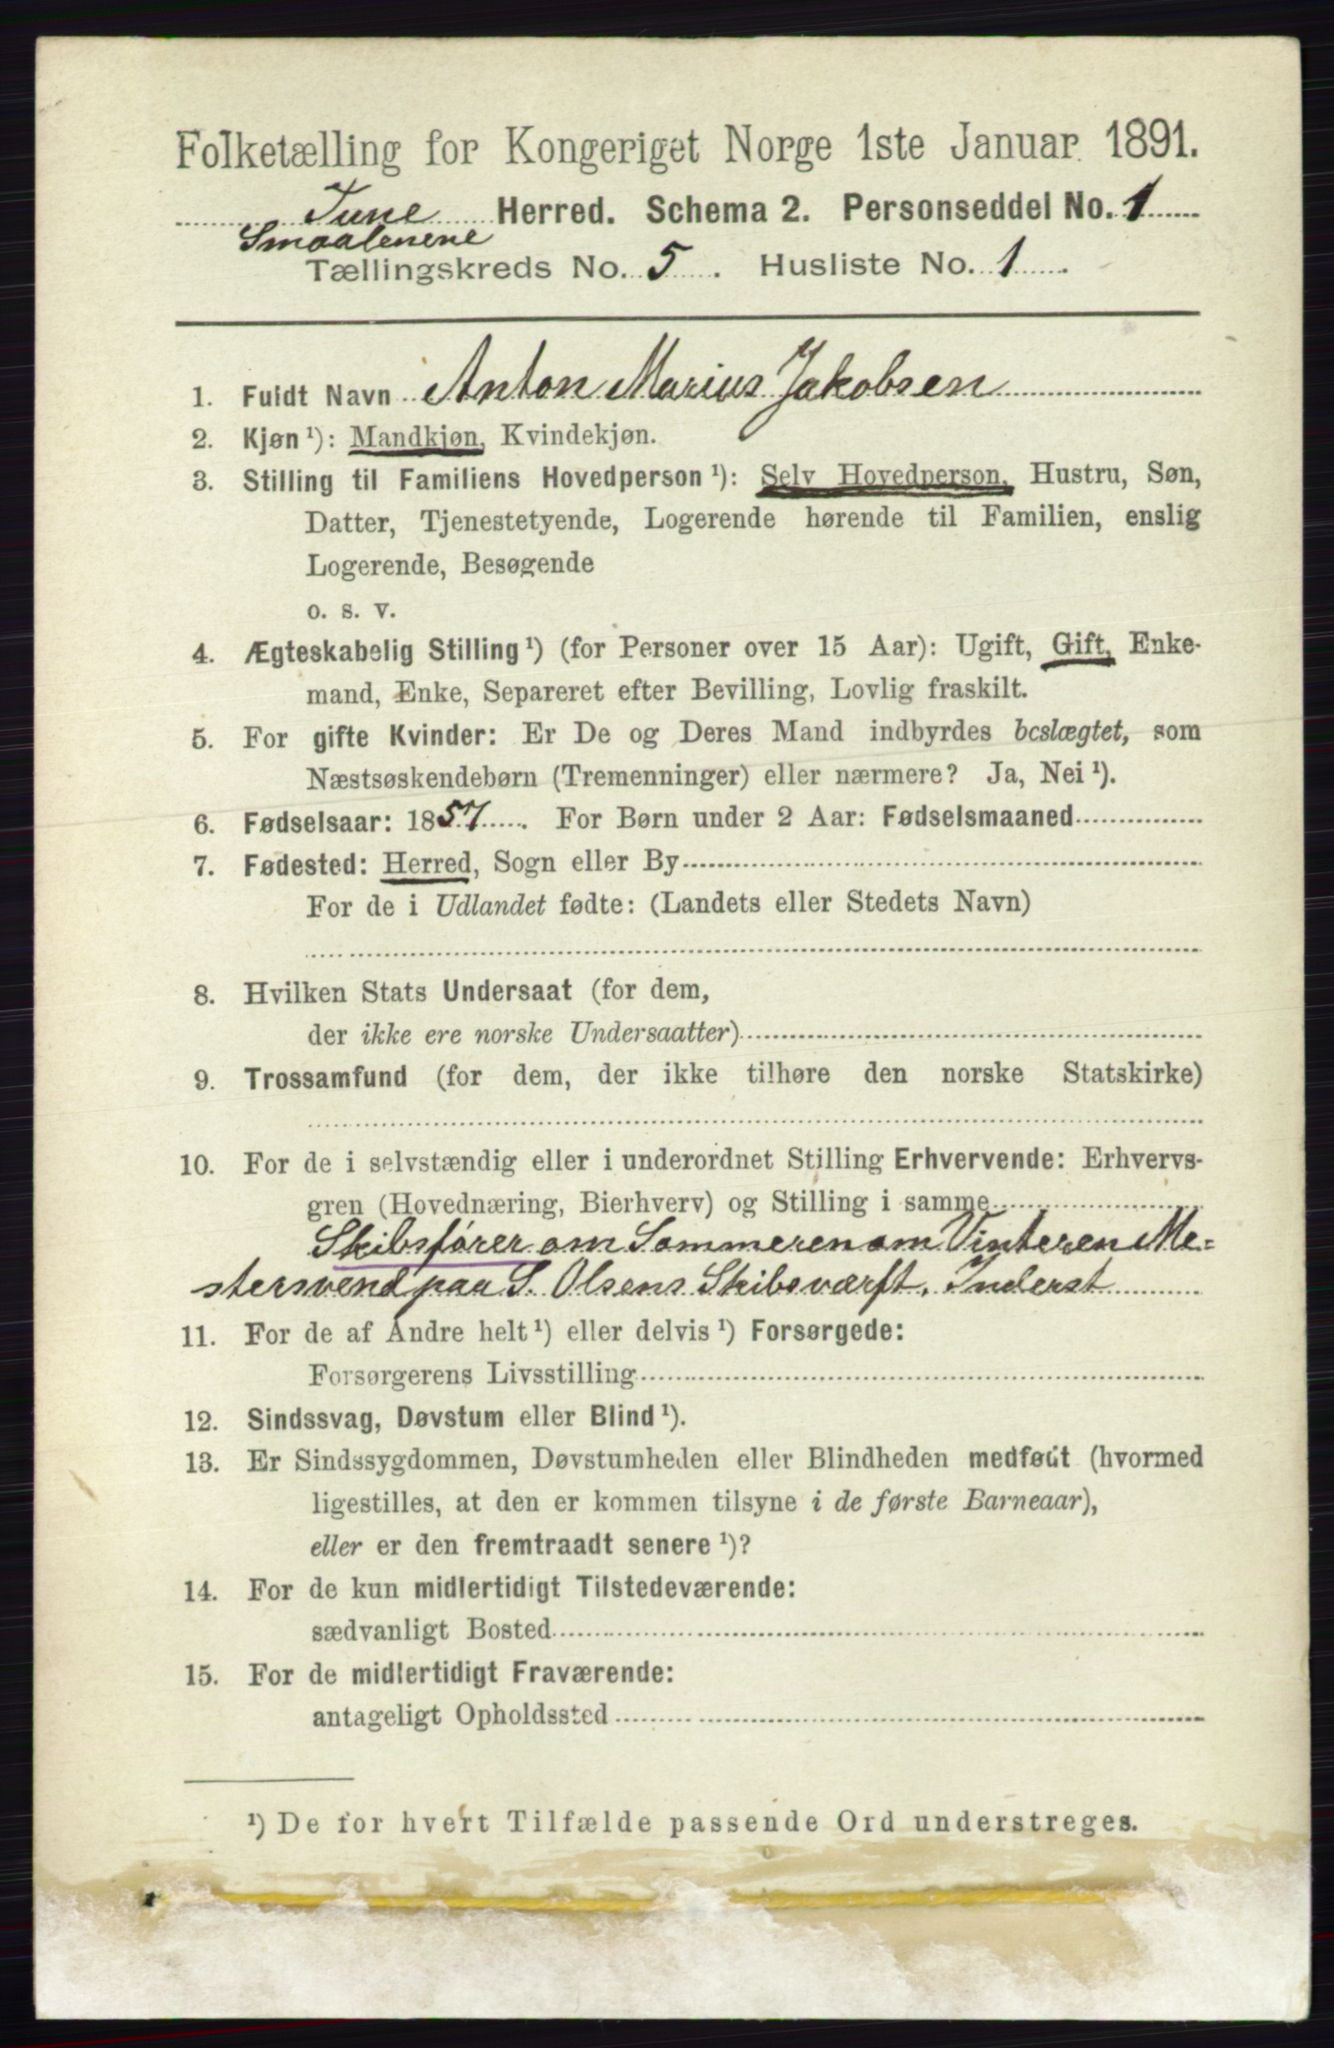 Folketælling for Kongeriget Norge 1ste Januar 1891.
Tune Herred. Schema 2. Personseddel No. 1
Smaalenene
Tællingskreds No. 5. Husliste No. 1.
1. Fuldt Navn Anton Marius Jakobsen
2. Kjøn ¹): Mandkjøn, Kvindekjøn.
3. Stilling til Familiens Hovedperson ¹): Selv Hovedperson, Hustru, Søn,
Datter, Tjenestetyende, Logerende hørende til Familien, enslig
Logerende, Besøgende
o. s. v.
4. Ægteskabelig Stilling ¹) (for Personer over 15 Aar): Ugift, Gift, Enke-
mand, Enke, Separeret efter Bevilling, Lovlig fraskilt.
5. For gifte Kvinder: Er De og Deres Mand indbyrdes beslægtet, som
Næstsøskendebørn (Tremenninger) eller nærmere? Ja, Nei ¹).
6. Fødselsaar: 1857. For Børn under 2 Aar: Fødselsmaaned
7. Fødested: Herred, Sogn eller By
For de i Udlandet fødte: (Landets eller Stedets Navn)
8. Hvilken Stats Undersaat (for dem,
der ikke ere norske Undersaatter)
9. Trossamfund (for dem, der ikke tilhøre den norske Statskirke)
10. For de i selvstændig eller i underordnet Stilling Erhvervende: Erhvervs-
gren (Hovednæring, Bierhverv) og Stilling i samme
Skibsfører om Sommeren om Vinteren Me=
stersvend paa S. Olsens Skibsværft. Inderst
11. For de af Andre helt ¹) eller delvis ¹) Forsørgede:
Forsørgerens Livsstilling
12. Sindssvag, Døvstum eller Blind ¹).
13. Er Sindssygdommen, Døvstumheden eller Blindheden medfødt (hvormed
ligestilles, at den er kommen tilsyne i de første Barneaar),
eller er den fremtraadt senere ¹)?
14. For de kun midlertidigt Tilstedeværende:
sædvanligt Bosted
15. For de midlertidigt Fraværende:
antageligt Opholdssted
¹) De for hvert Tilfælde passende Ord understreges.